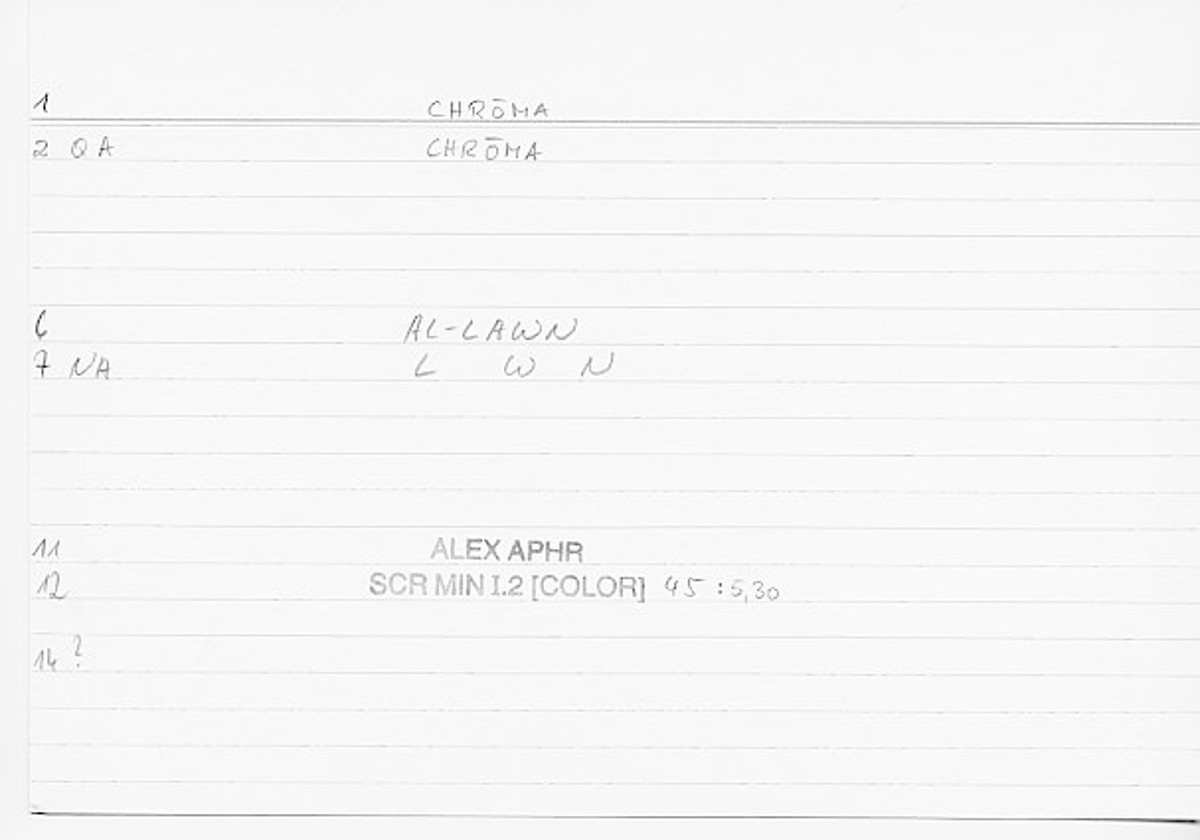 1 CHRŌMA
2 QA CHRŌMA
6 AL-LAWN
7 NA L W N
11 ALEX APHR
12 SCR MIN I.2 [COLOR] 45 : 5,30
14 ?